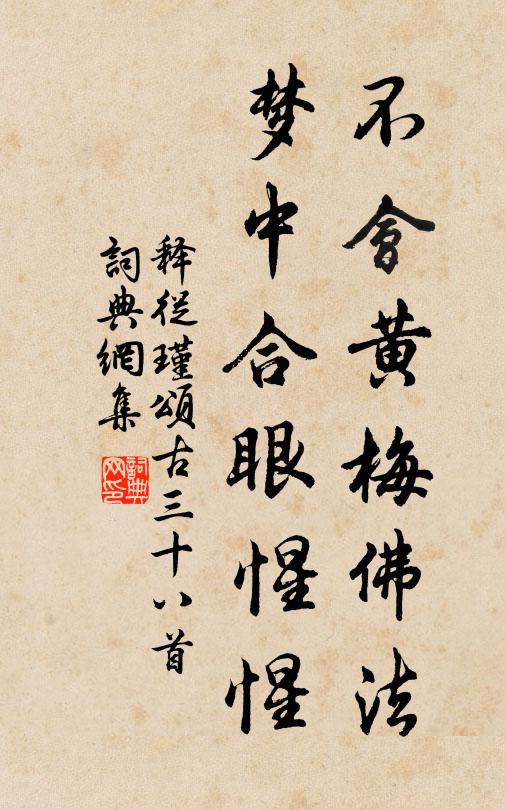 不會黄梅佛法
梦中合眼惺惺
释從瑾頌古三十八首
詞典網集
詞典網印